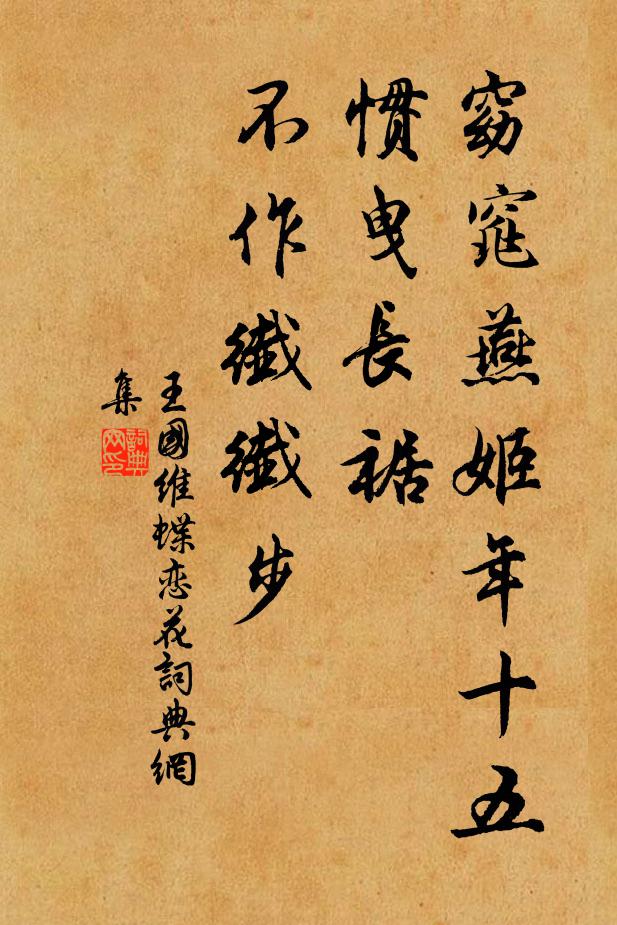 窈窕燕姬年十五
慣曳長裾
不作纖纖步
王國維蝶恋花詞典網
集
詞典
网印